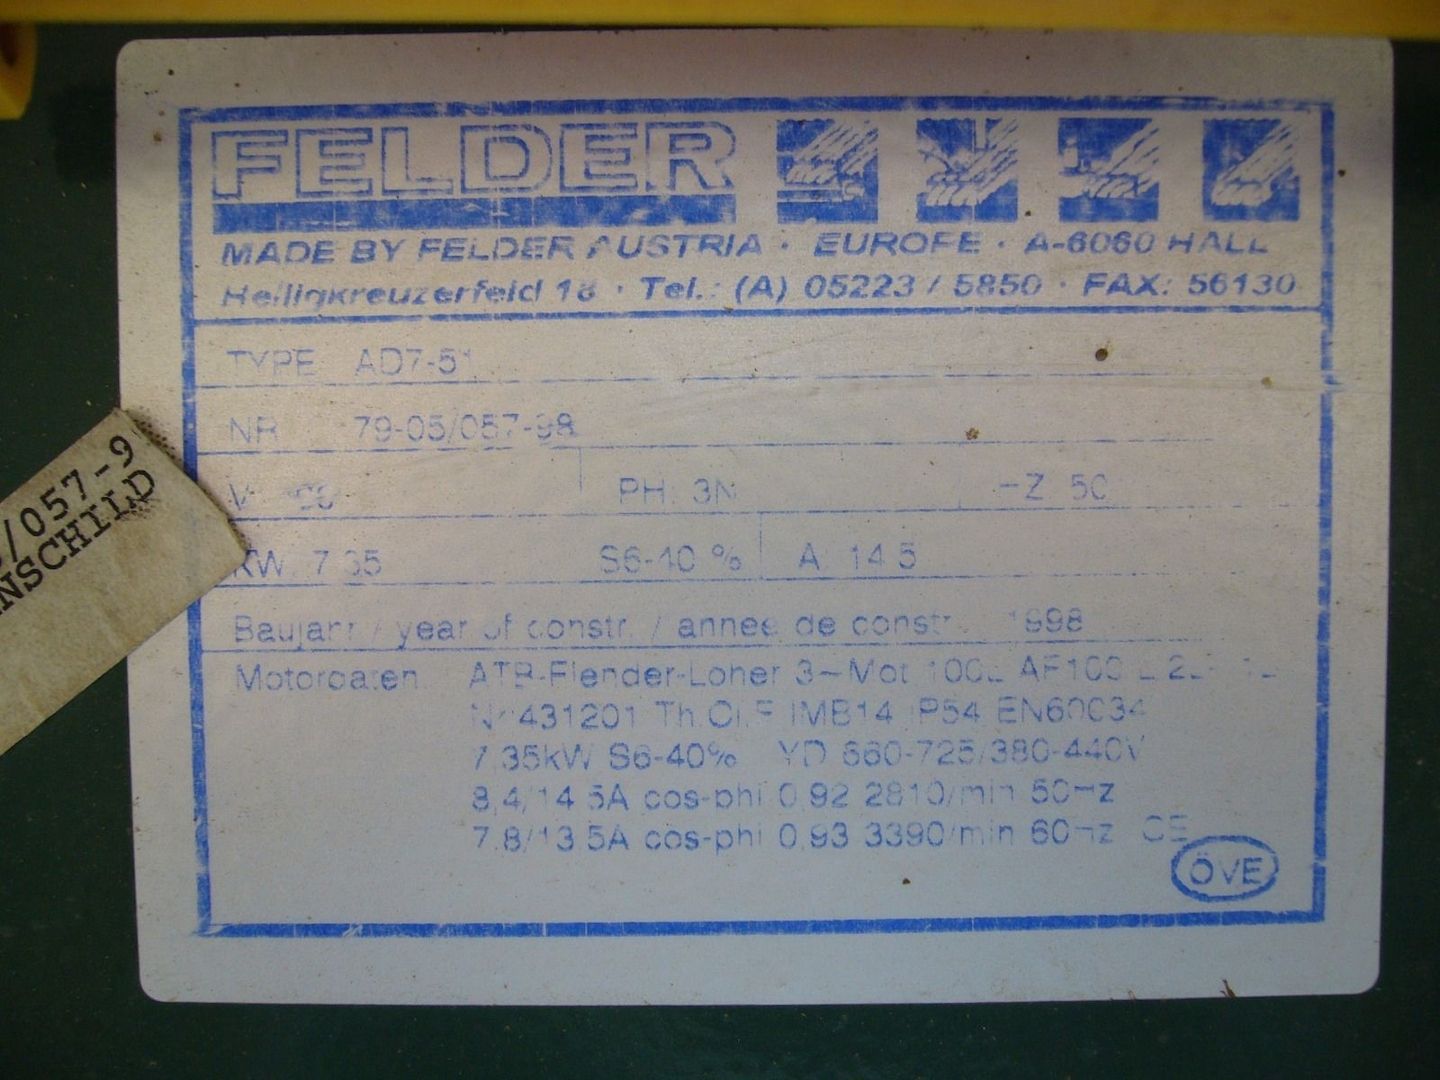 FELDER
MADE BY FELDER AUSTRIA · EUROPE · A-6060 HALL
Heiligkreuzerfeld 18 · Tel.: (A) 05223 / 5850 · FAX: 56130
TYPE AD7-51
NR 79-05/057-98
V PH: 3N HZ 50
KW 7.35 S6-40 % A: 14.5
Baujahr / year of constr. / annee de constr. 1998
Motordaten ATB-Flender-Loher 3~Mot 100L AF100
Nr 431201 Th.Cl.F IMB14 IP54 EN60034
7.35kW S6-40% YD 660-725/380-440V
8,4/14.5A cos-phi 0.92 2810/min 50Hz
7.8/13.5A cos-phi 0.93 3390/min 60Hz CE
ÖVE
/057-9
NSCHILD